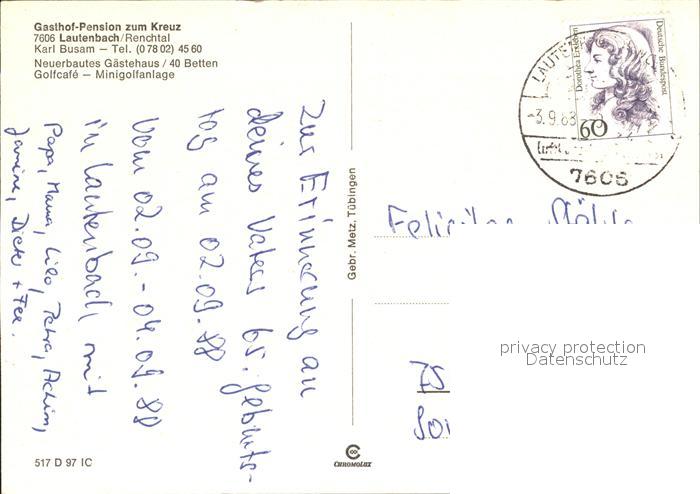 Gasthof-Pension zum Kreuz
7606 Lautenbach/Renchtal
Karl Busam – Tel. (0 78 02) 45 60
Neuerbautes Gästehaus / 40 Betten
Golfcafé – Minigolfanlage
Zur Erinnerung an
deines Vaters 65. Geburts-
tag am 02.09.88
vom 02.09. - 04.09.88
in Lautenbach mit
Papa, Mama, Lilo, Petra, Achim,
Janine, Dieter + Fee.
517 D 97 IC
Gebr. Metz, Tübingen
CHROMOLUX
Dorothea Erxleben
Deutsche Bundespost
60
LAUTE
-3.9.88
7606
privacy protection
Datenschutz